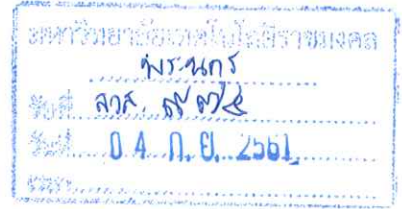 มหาวิทยาลัยเทคโนโลยีราชมงคล
พระนคร
รับที่ สวส.
วันที่ 04 ก.ย. 2561
เวลา